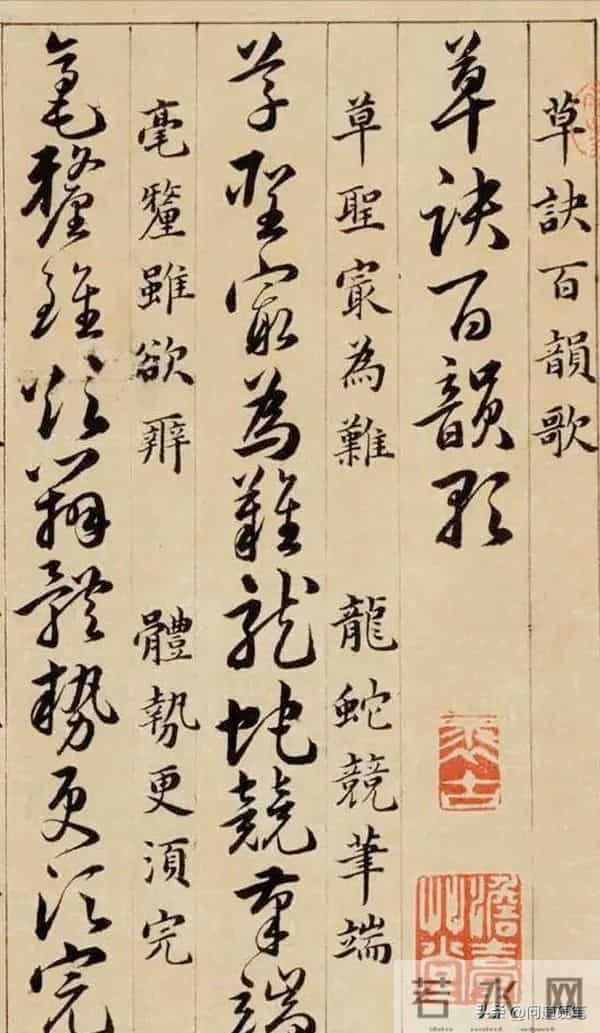 草訣百韻歌
草訣百韻歌
草聖㝡為難 龍蛇競筆端
草聖㝡為難龍蛇競筆端
毫釐雖欲辨 體勢更湏完
毫釐雖欲辨體勢更湏完
若水网
头条